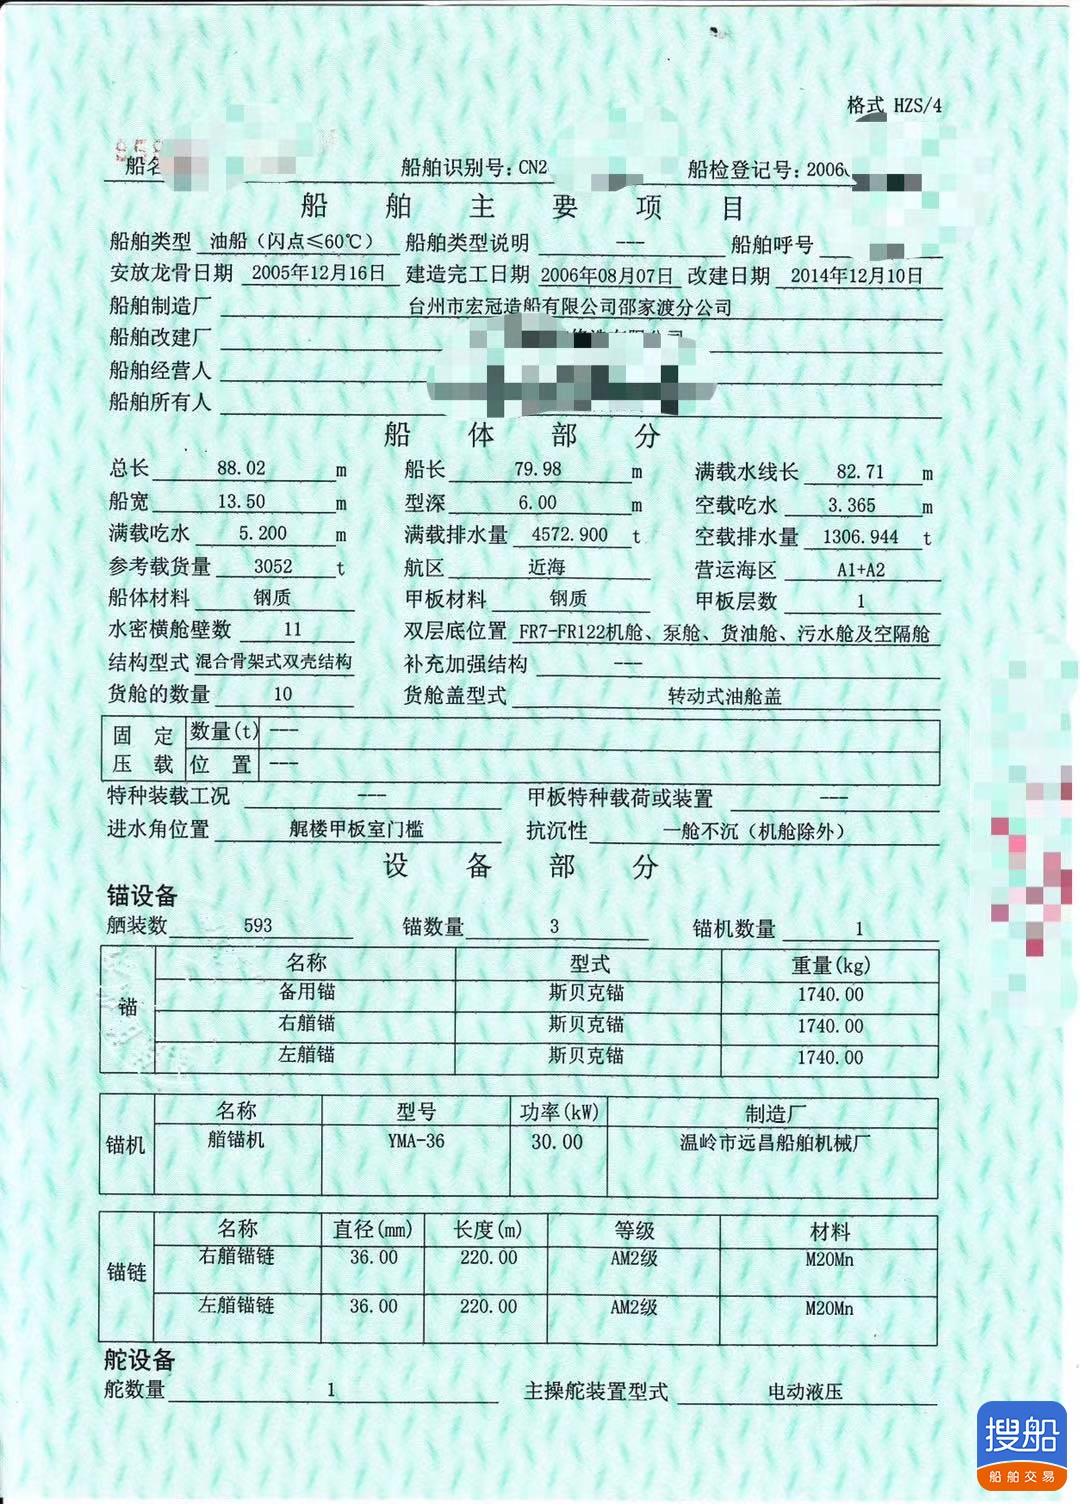 格式 HZS/4
船名 船舶识别号:CN2 船检登记号:2006
船舶主要项目
船舶类型 油船（闪点≤60℃） 船舶类型说明 --- 船舶呼号
安放龙骨日期 2005年12月16日 建造完工日期 2006年08月07日 改建日期 2014年12月10日
船舶制造厂 台州市宏冠造船有限公司邵家渡分公司
船舶改建厂
船舶经营人
船舶所有人
船体部分
总长 88.02 m 船长 79.98 m 满载水线长 82.71 m
船宽 13.50 m 型深 6.00 m 空载吃水 3.365 m
满载吃水 5.200 m 满载排水量 4572.900 t 空载排水量 1306.944 t
参考载货量 3052 t 航区 近海 营运海区 A1+A2
船体材料 钢质 甲板材料 钢质 甲板层数 1
水密横舱壁数 11 双层底位置 FR7-FR122机舱、泵舱、货油舱、污水舱及空隔舱
结构型式 混合骨架式双壳结构 补充加强结构 ---
货舱的数量 10 货舱盖型式 转动式油舱盖
固定压载 数量(t) ---
位置 ---
特种装载工况 --- 甲板特种载荷或装置 ---
进水角位置 艉楼甲板室门槛 抗沉性 一舱不沉（机舱除外）
设备部分
锚设备
舾装数 593 锚数量 3 锚机数量 1
锚 名称 型式 重量(kg)
备用锚 斯贝克锚 1740.00
右艏锚 斯贝克锚 1740.00
左艏锚 斯贝克锚 1740.00
锚机 名称 型号 功率(kW) 制造厂
艏锚机 YMA-36 30.00 温岭市远昌船舶机械厂
锚链 名称 直径(mm) 长度(m) 等级 材料
右艏锚链 36.00 220.00 AM2级 M20Mn
左艏锚链 36.00 220.00 AM2级 M20Mn
舵设备
舵数量 1 主操舵装置型式 电动液压
搜船
船舶交易